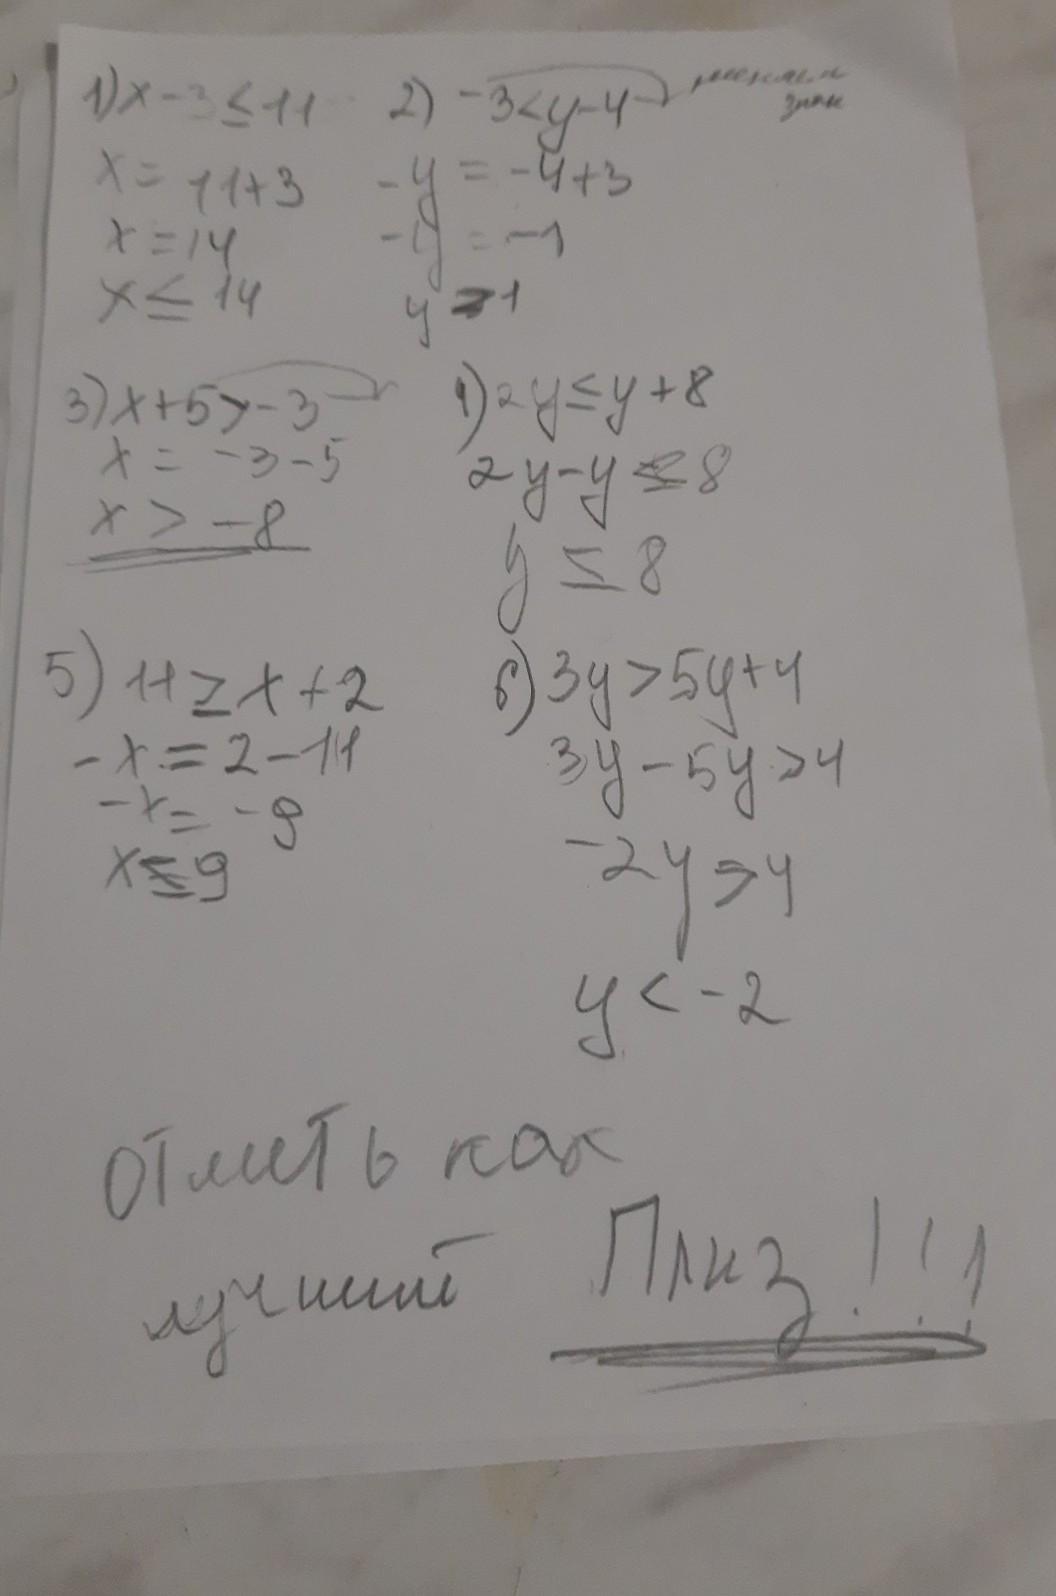 1) x - 3 ≤ 11
x = 11+3
x = 14
x ≤ 14
2) -3 < y - 4 меняем
знак
-y = -4+3
-y = -1
y > 1
3) x+5 > -3
x = -3-5
x > -8
1) 2y ≤ y + 8
2y - y ≤ 8
y ≤ 8
5) 11 ≥ x + 2
-x = 2 - 11
-x = -9
x ≤ 9
6) 3y > 5y + 4
3y - 5y > 4
-2y > 4
y < -2
Отметь как
лучший Плиз!!!